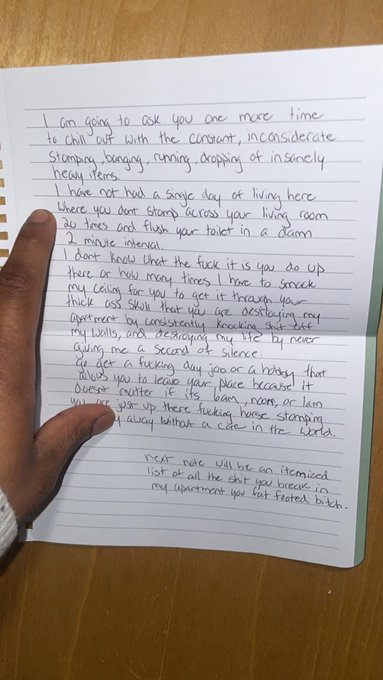 I am going to ask you one more time
to chill out with the constant, inconsiderate
stomping, banging, running, dropping of insanely
heavy items.
I have not had a single day of living here
where you dont stomp across your living room
20 times and flush your toilet in a damn
2 minute interval.
I dont know what the fuck it is you do up
there or how many times I have to smack
my ceiling for you to get it through your
thick ass skull that you are destroying my
apartment by consistently knocking shit off
my walls, and destroying my life by never
giving me a second of silence.
go get a fucking day job or a hobby that
allows you to leave your place because it
doesnt matter if its 6am, noon, or 1am
you are just up there fucking horse stomping
away without a care in the world.
next note will be an itemized
list of all the shit you break in
my apartment you fat footed bitch.